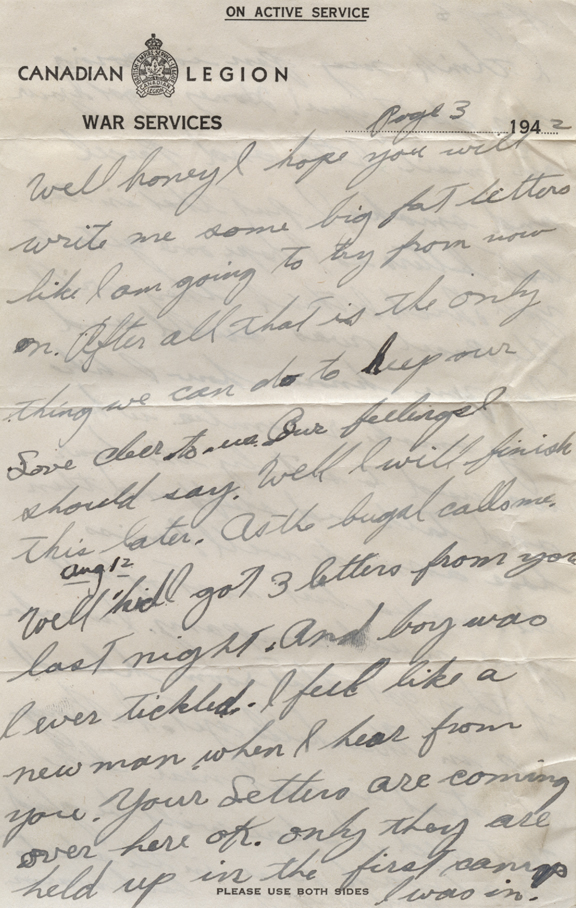 ON ACTIVE SERVICE
CANADIAN LEGION
WAR SERVICES
Page 3 1942
Well honey I hope you will
write me some big fat letters
like I am going to try from now
on. After all that is the only
thing we can do to keep our
Love clear to us. Our feelings I
should say. Well I will finish
this later. As the bugal calls me.
Aug 12
Well kid I got 3 letters from you
last night. And boy was
I ever tickled. I feel like a
new man when I hear from
you. Your Letters are coming
over here OK. only they are
held up in the first camp
I was in.
PLEASE USE BOTH SIDES